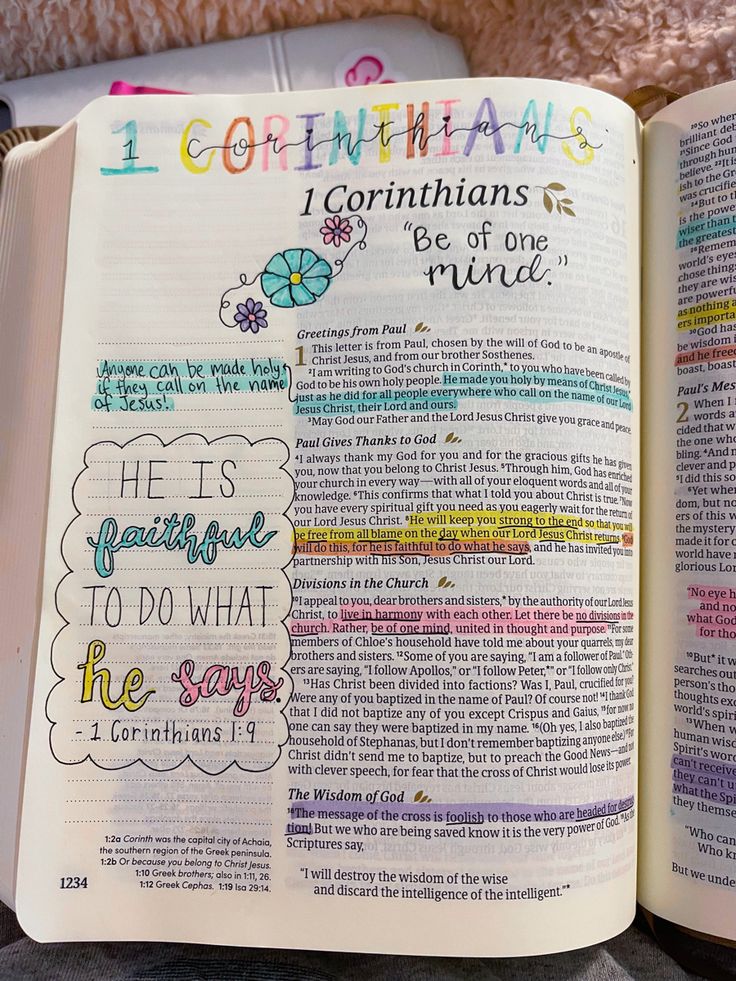 1 CORINTHIANS
corinthians
1 Corinthians
"Be of one
mind."
Anyone can be made holy
if they call on the name
of Jesus!
HE IS
faithful
TO DO WHAT
he says.
- 1 Corinthians 1:9
Greetings from Paul
1 This letter is from Paul, chosen by the will of God to be an apostle of
Christ Jesus, and from our brother Sosthenes.
²I am writing to God's church in Corinth,* to you who have been called by
God to be his own holy people. He made you holy by means of Christ Jesus,*
just as he did for all people everywhere who call on the name of our Lord
Jesus Christ, their Lord and ours.
³May God our Father and the Lord Jesus Christ give you grace and peace.
Paul Gives Thanks to God
⁴I always thank my God for you and for the gracious gifts he has given
you, now that you belong to Christ Jesus. ⁵Through him, God has enriched
your church in every way—with all of your eloquent words and all of your
knowledge. ⁶This confirms that what I told you about Christ is true. ⁷Now
you have every spiritual gift you need as you eagerly wait for the return of
our Lord Jesus Christ. ⁸He will keep you strong to the end so that you will
be free from all blame on the day when our Lord Jesus Christ returns. ⁹God
will do this, for he is faithful to do what he says, and he has invited you into
partnership with his Son, Jesus Christ our Lord.
Divisions in the Church
¹⁰I appeal to you, dear brothers and sisters,* by the authority of our Lord Jesus
Christ, to live in harmony with each other. Let there be no divisions in the
church. Rather, be of one mind, united in thought and purpose. ¹¹For some
members of Chloe's household have told me about your quarrels, my dear
brothers and sisters. ¹²Some of you are saying, "I am a follower of Paul." Oth-
ers are saying, "I follow Apollos," or "I follow Peter,*" or "I follow only Christ."
¹³Has Christ been divided into factions? Was I, Paul, crucified for you?
Were any of you baptized in the name of Paul? Of course not! ¹⁴I thank God
that I did not baptize any of you except Crispus and Gaius, ¹⁵for now no
one can say they were baptized in my name. ¹⁶(Oh yes, I also baptized the
household of Stephanas, but I don't remember baptizing anyone else.) ¹⁷For
Christ didn't send me to baptize, but to preach the Good News—and not
with clever speech, for fear that the cross of Christ would lose its power.
The Wisdom of God
¹⁸The message of the cross is foolish to those who are headed for destruc-
tion! But we who are being saved know it is the very power of God. ¹⁹As the
Scriptures say,
"I will destroy the wisdom of the wise
and discard the intelligence of the intelligent."*
1:2a Corinth was the capital city of Achaia,
the southern region of the Greek peninsula.
1:2b Or because you belong to Christ Jesus.
1:10 Greek brothers; also in 1:11, 26.
1:12 Greek Cephas. 1:19 Isa 29:14.
1234
²⁰So where
brilliant deb
²¹Since God
through hum
believe. ²²It is
ish to the Gre
was crucified
²⁴But to th
is the power
wiser than t
the greatest
²⁶Remem
world's eyes
chose things
they are wis
are powerfu
as nothing a
ers importa
³⁰God has
be wisdom i
and he freed
boast, boast
Paul's Mes
2 When I f
words a
cided that w
the one who
bling. ⁴And m
clever and p
⁵I did this so
⁶Yet when
dom, but no
ers of this w
the mystery
made it for o
world have n
glorious Lor
"No eye h
and no
what God
for tho
¹⁰But* it w
searches out
person's tho
thoughts exc
world's spiri
¹³When w
human wisd
Spirit's word
can't receive
they can't u
what the Spi
they themse
"Who can
Who kn
But we unde